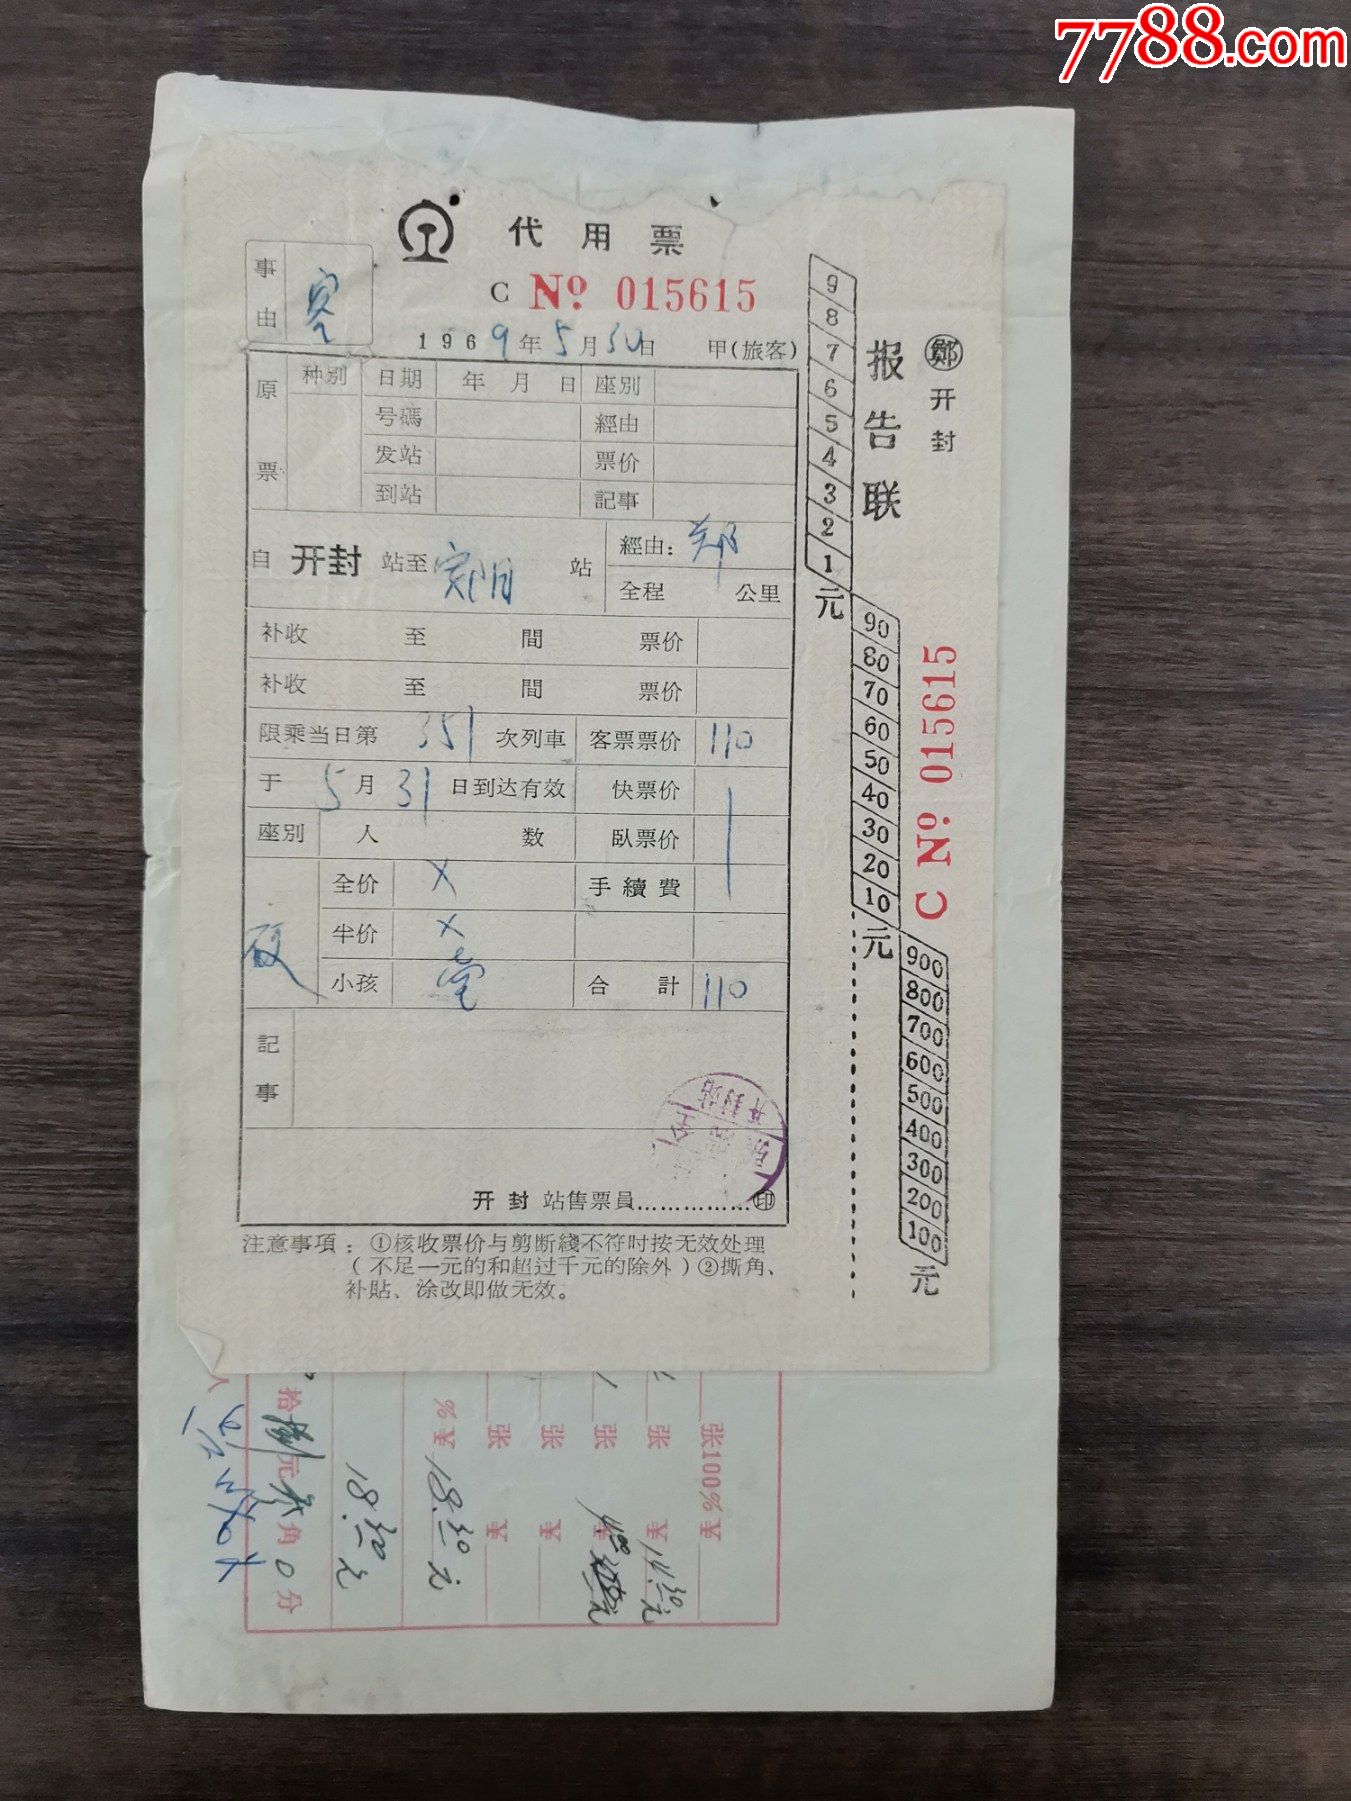 7788.com
代用票
C No. 015615
事由 客
1969年5月30日 甲(旅客)
原票 种別 日期 年 月 日 座別
号碼 經由
发站 票价
到站 記事
自 开封 站至 站
經由: 郑
全程 公里
补收 至 間 票价
补收 至 間 票价
限乘当日第 351 次列車 客票票价 110
于 5 月 31 日到达有效 快票价
座別 人 数 臥票价
硬 全价 × 手續費
半价 ×
小孩 壹 合計 110
記事
开封站
开封 站售票員……………印
注意事項：①核收票价与剪断綫不符时按无效处理
(不足一元的和超过千元的除外)②撕角、
补貼、涂改即做无效。
9
8
7
6
5
4
3
2
1
元
报告联
鄭 开封
90
80
70
60
50
40
30
20
10
元
C No. 015615
900
800
700
600
500
400
300
200
100
元
张100%￥
张 ￥
张 ￥
张 ￥
张 ￥
%￥18.30元
18.30元
拾 元 角0分
人